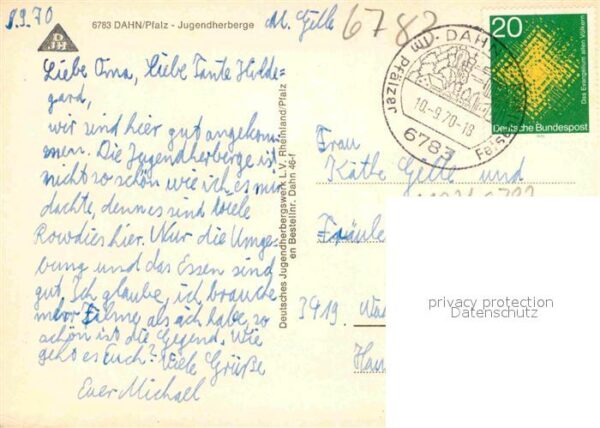 8.9.70
DJH
6783 DAHN/Pfalz - Jugendherberge
M. Gelle
6782
Liebe Oma, Liebe Tante Hilde=
gard,
wir sind hier gut angekom=
men. Die Jugendherberge ist
nicht so schön wie ich es mir
dachte, denn es sind viele
Rowdies hier. Nur die Umge=
bung und das Essen sind
gut. Ich glaube, ich brauche
mehr Filme als ich habe, so
schön ist die Gegend. Wie
geht es Euch? Viele Grüße
Euer Michael
Deutsches Jugendherbergswerk L.V. Rheinland/Pfalz
en Bestellnr. Dahn 46-f
DAHN
im Pfälzer
Felsen
10.-9.70-18
6783
20
Das Evangelium allen Völkern
Deutsche Bundespost
Frau
Käthe Gelle und
Fräule
3419
Han
privacy protection
Datenschutz